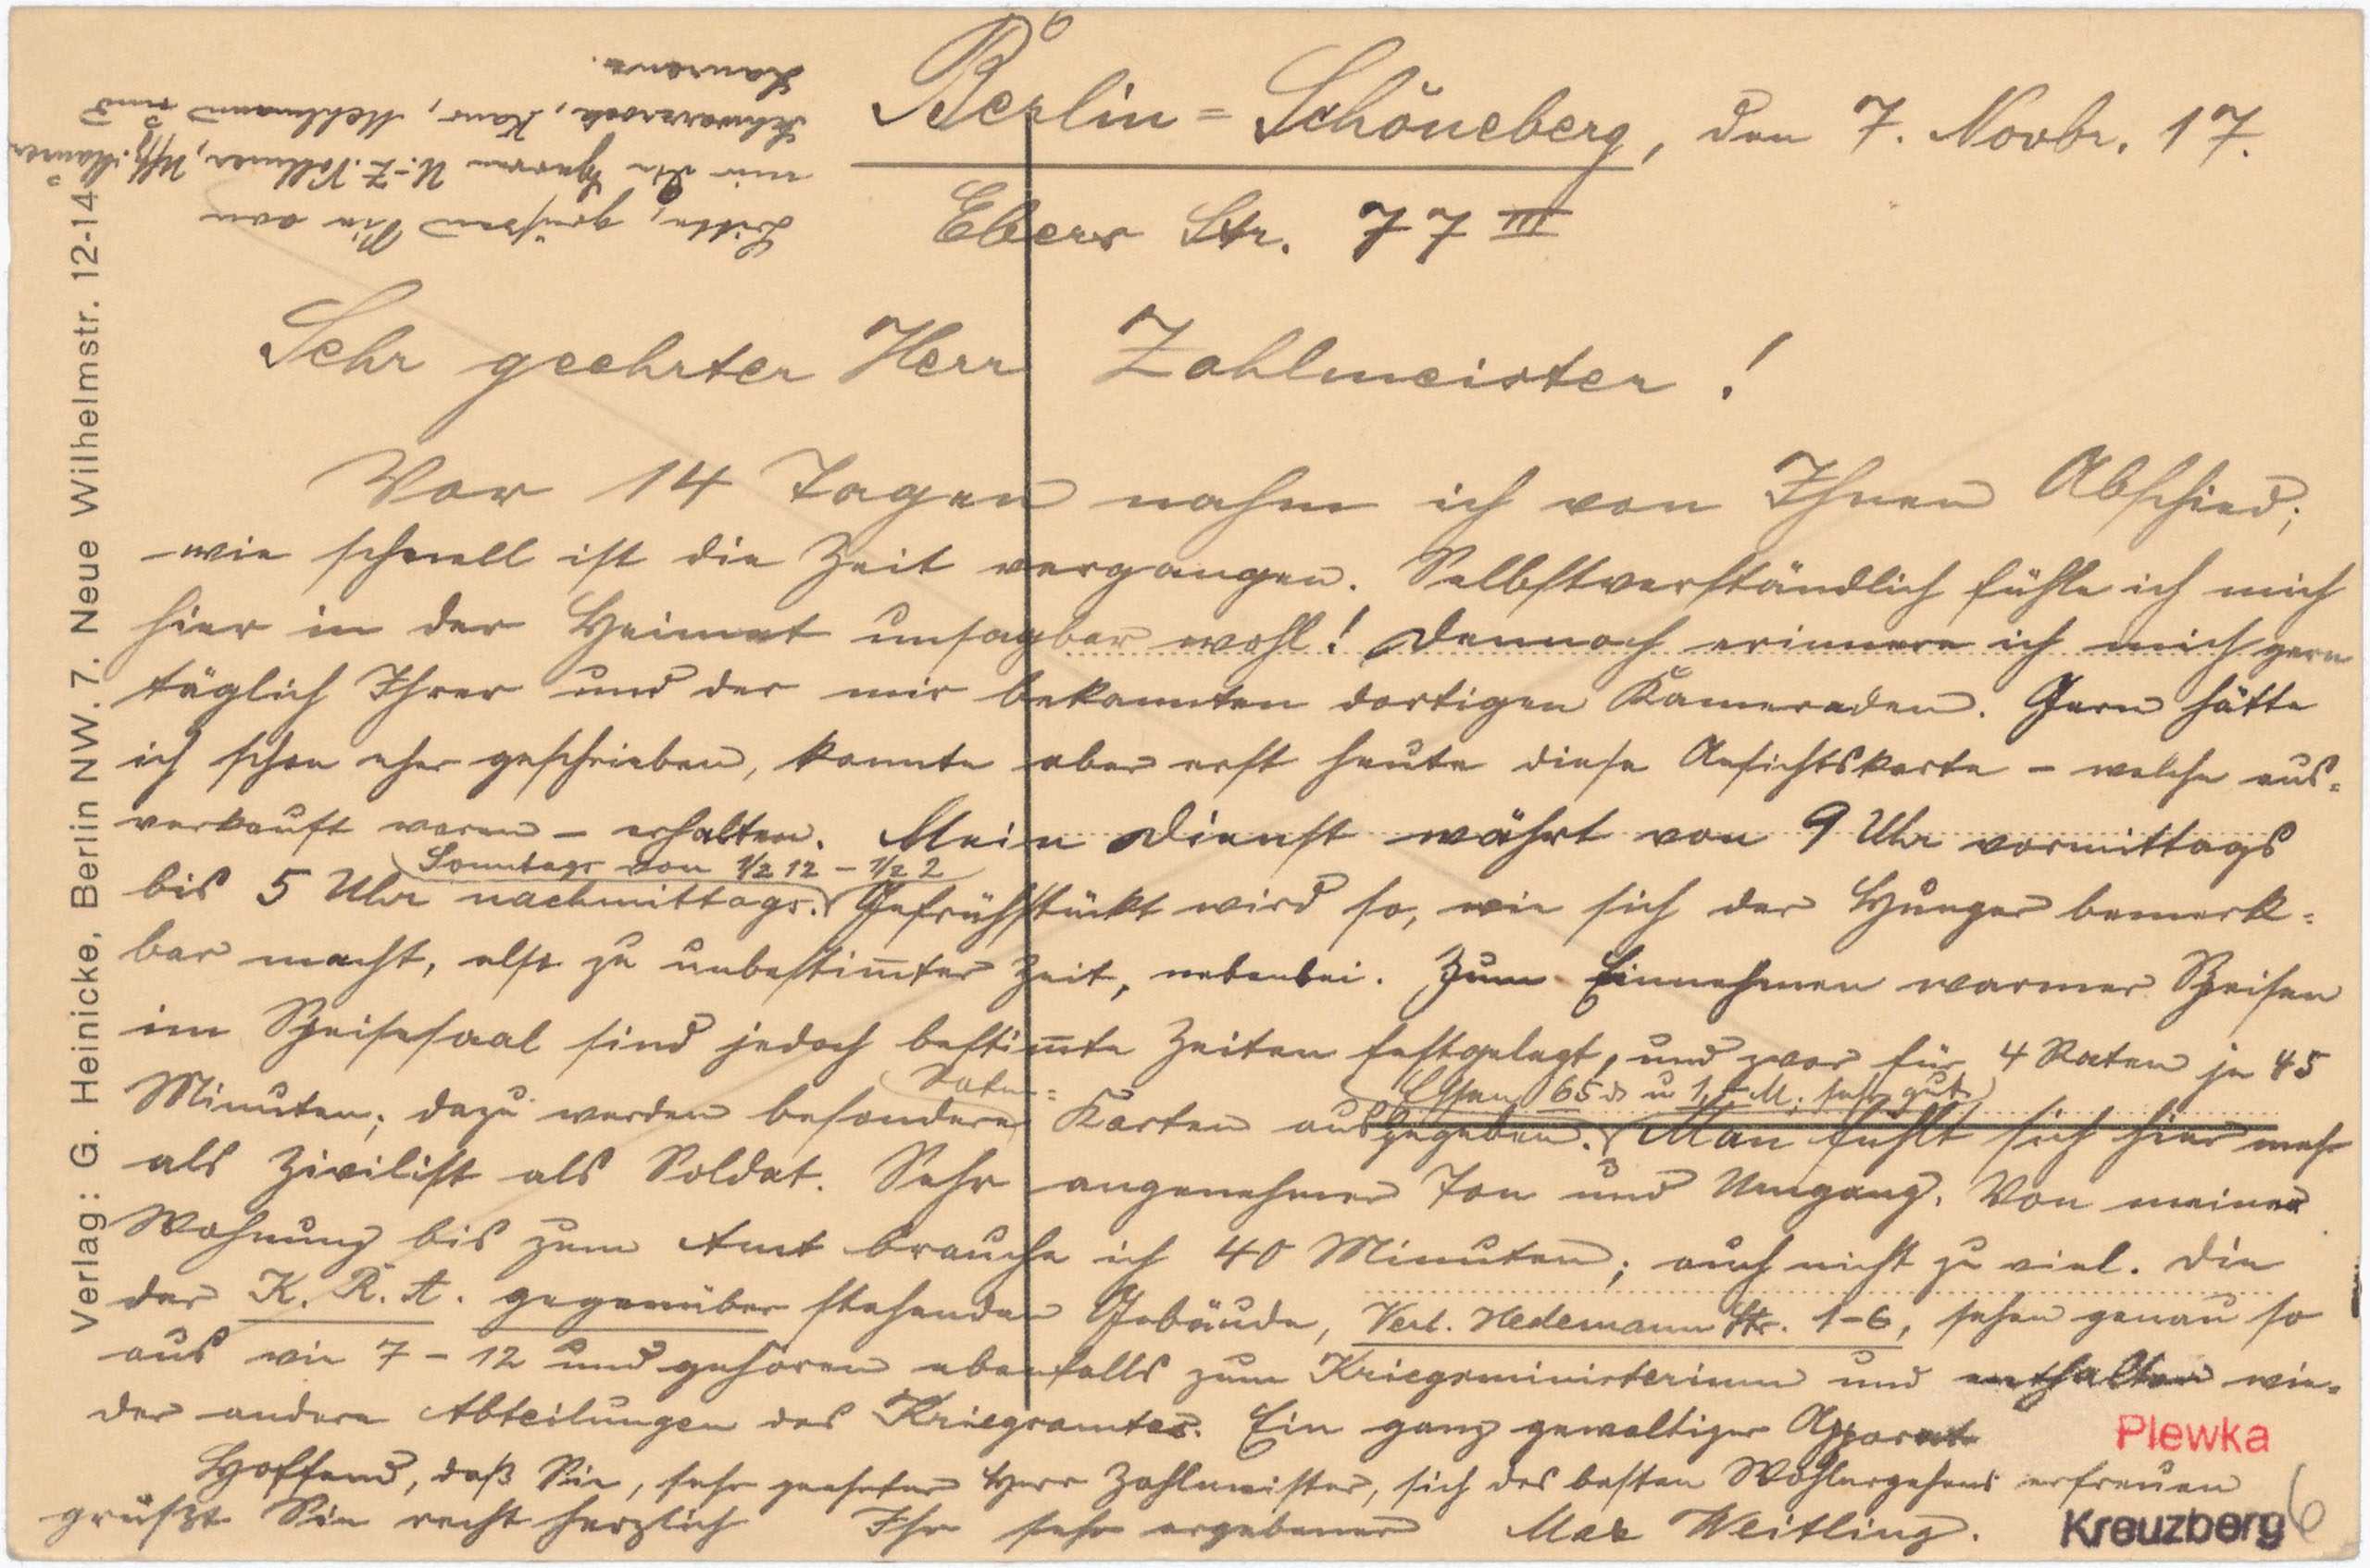 Berlin=Schöneberg, den 7. Novbr. 17.
Ebers Str. 77 III
Sehr geehrter Herr Zahlmeister!
Vor 14 Tagen nahm ich von Ihnen Abschied;
wie schnell ist die Zeit vergangen. Selbstverständlich fühle ich mich
hier in der Heimat unsagbar wohl! Dennoch erinnere ich mich gern
täglich Ihrer und der mir bekannten dortigen Kameraden. Gern hätte
ich schon eher geschrieben, konnte aber erst heute diese Ansichtskarte – welche aus=
verkauft waren – erhalten. Mein Dienst währt von 9 Uhr vormittags
Sonntags von 1/2 12 – 1/2 2
bis 5 Uhr nachmittags. Gefrühstückt wird so, wie sich der Hunger bemerk=
bar macht, also zu unbestim̅ter Zeit, nebenbei. Zum Einnehmen warmer Speisen
im Speisesaal sind jedoch bestim̅te Zeiten festgelegt, und zwar für 4 Raten je 45
Minuten; dazu werden besondere Karten ausgegeben. Man fühlt sich hier mehr
Essen 65 u 1,– M. sehr gut
als Zivilist als Soldat. Sehr angenehmer Ton und Umgang. Von meiner
Wohnung bis zum Amt brauche ich 40 Minuten; auch nicht zu viel. Die
der K. R. A. gegenüber stehenden Gebäude, Verl. Hedemann Str. 1–6, sehen genau so
aus wie 7 – 12 und gehören ebenfalls zum Kriegsministerium und enthalten wie=
der andere Abteilungen des Kriegsamtes. Ein ganz gewaltiger Apparat
Hoffend, daß Sie, sehr geehrter Herr Zahlmeister, sich des besten Wohlergehens erfreuen
grüßt Sie recht herzlich Ihr sehr ergebener Max Weitling.
Bitte, grüßen Sie von
mir die Herren U.-Z. Vollmer, Uffz.
Schwarzrock, Kaus, Mehlmann und
Verlag: G. Heinicke, Berlin NW. 7. Neue Wilhelmstr. 12-14
Plewka
Kreuzberg
6